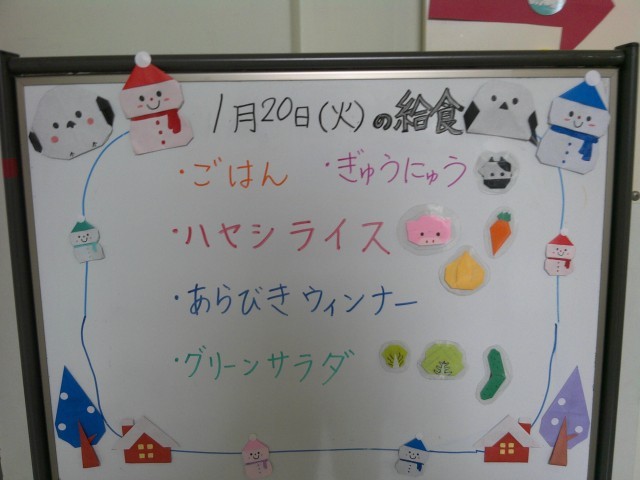 1月20日(火)の給食
・ごはん ・ぎゅうにゅう
・ハヤシライス
・あらびきウィンナー
・グリーンサラダ